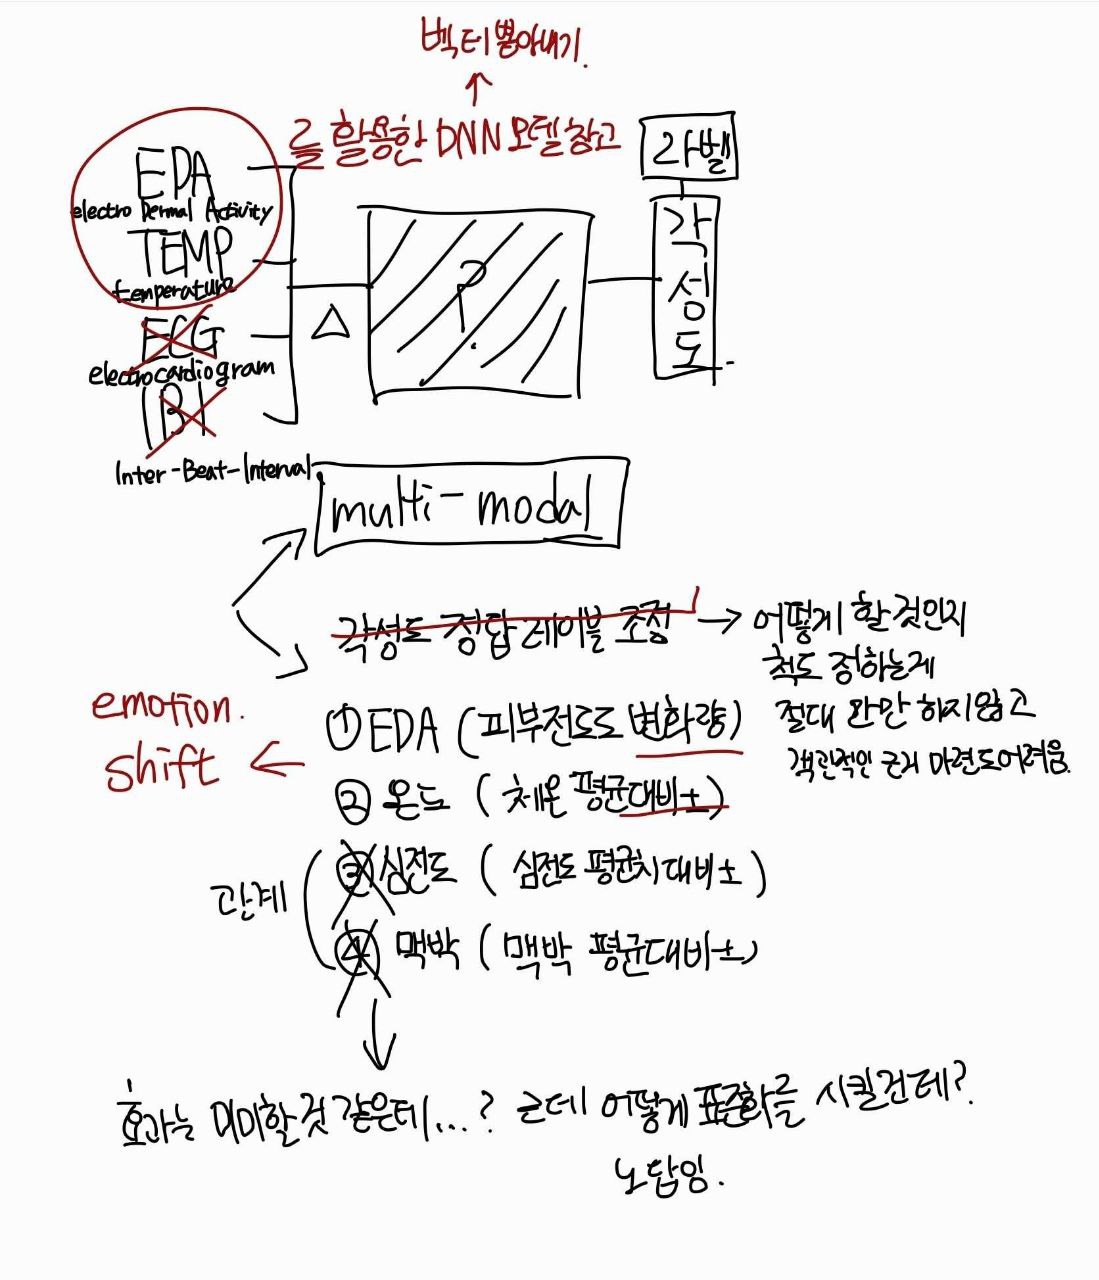 벡터뽑아내기.
를 활용한 DNN 모델 참고
라벨
EDA
electro Dermal Activity
TEMP
temperature
ECG
electrocardiogram
IBI
Inter-Beat-Interval
△
?
각성도
multi-modal
각성도 정답 레이블 조정 → 어떻게 할 것인지
척도 정하는게
절대 완만 하지않고
객관적인 근거 마련도어려움.
emotion.
shift
① EDA (피부전도도 변화량)
② 온도 (체온 평균대비±)
③ 심전도 (심전도 평균치대비±)
관계
④ 맥박 (맥박 평균대비±)
효과는 미미할것 같은데...? 근데 어떻게 표준화를 시킬건데?
노답임.